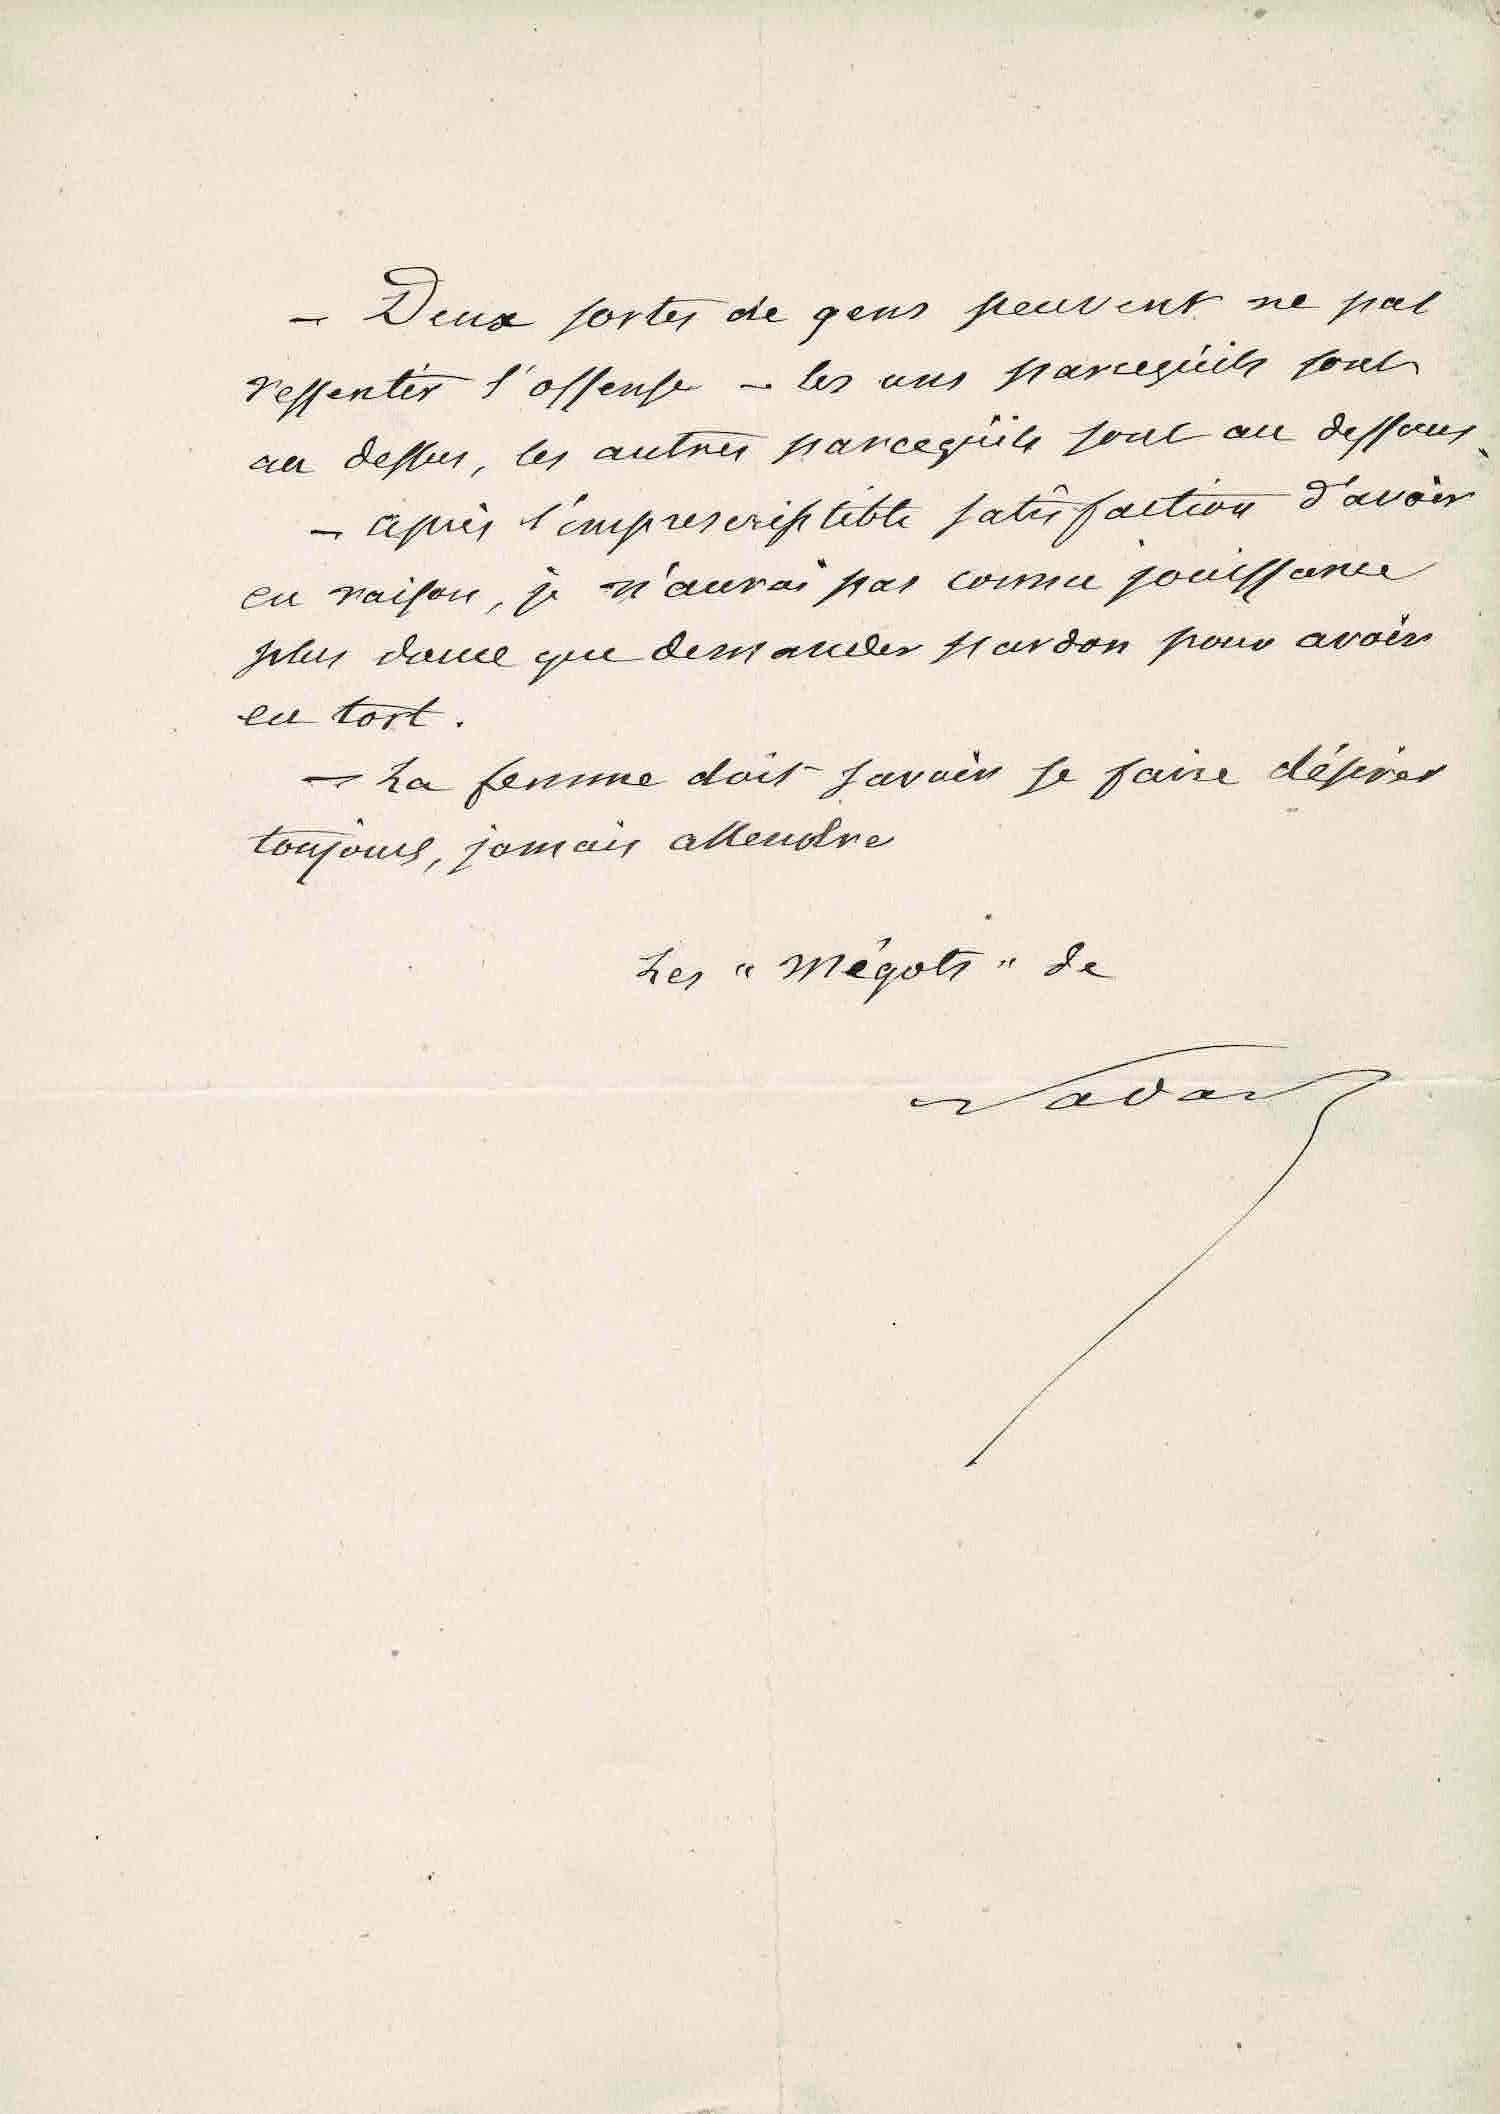 — Deux sortes de gens peuvent ne pas
ressentir l'offense — les uns parcequ'ils sont
au dessus, les autres parcequ'ils sont au dessous.
— après l'imprescriptible satisfaction d'avoir
eu raison, je n'aurai pas connu jouissance
plus douce que demander pardon pour avoir
eu tort.
— La femme doit savoir se faire désirer
toujours, jamais attendre
Les "Mégots" de
Nadar